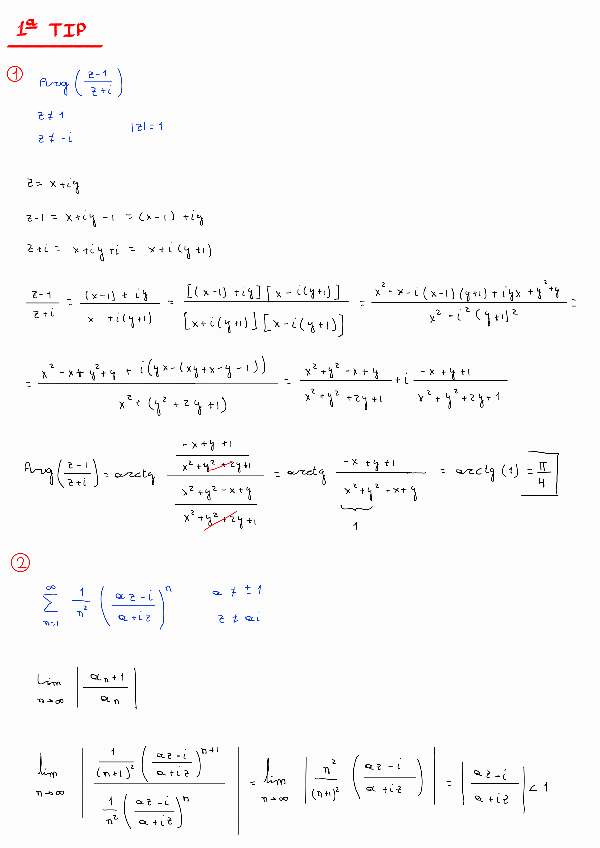 1ª TIP
① Arg ( (z-1)/(z+i) )
z ≠ 1
z ≠ -i |z| = 1
z = x+iy
z-1 = x+iy-1 = (x-1)+iy
z+i = x+iy+i = x+i(y+1)
(z-1)/(z+i) = ((x-1)+iy)/(x+i(y+1)) = ([(x-1)+iy][x-i(y+1)])/([x+i(y+1)][x-i(y+1)]) = (x²-x-i(x-1)(y+1)+iyx+y²+y)/(x²-i²(y+1)²) =
= (x²-x+y²+y+i(yx-(xy+x-y-1)))/(x²+(y²+2y+1)) = (x²+y²-x+y)/(x²+y²+2y+1) + i (-x+y+1)/(x²+y²+2y+1)
Arg ( (z-1)/(z+i) ) = arctg ((-x+y+1)/(x²+y²+2y+1))/((x²+y²-x+y)/(x²+y²+2y+1)) = arctg (-x+y+1)/(x²+y²-x+y) = arctg (1) = π/4
1
②
∞ Σ n=1 1/n² ( (az-i)/(a+iz) )ⁿ a ≠ ±1
z ≠ ai
lim n→∞ | (aₙ+1)/(aₙ) |
lim n→∞ | (1/(n+1)² ( (az-i)/(a+iz) )ⁿ⁺¹)/(1/n² ( (az-i)/(a+iz) )ⁿ) | = lim n→∞ | n²/(n+1)² ( (az-i)/(a+iz) ) | = | (az-i)/(a+iz) | < 1